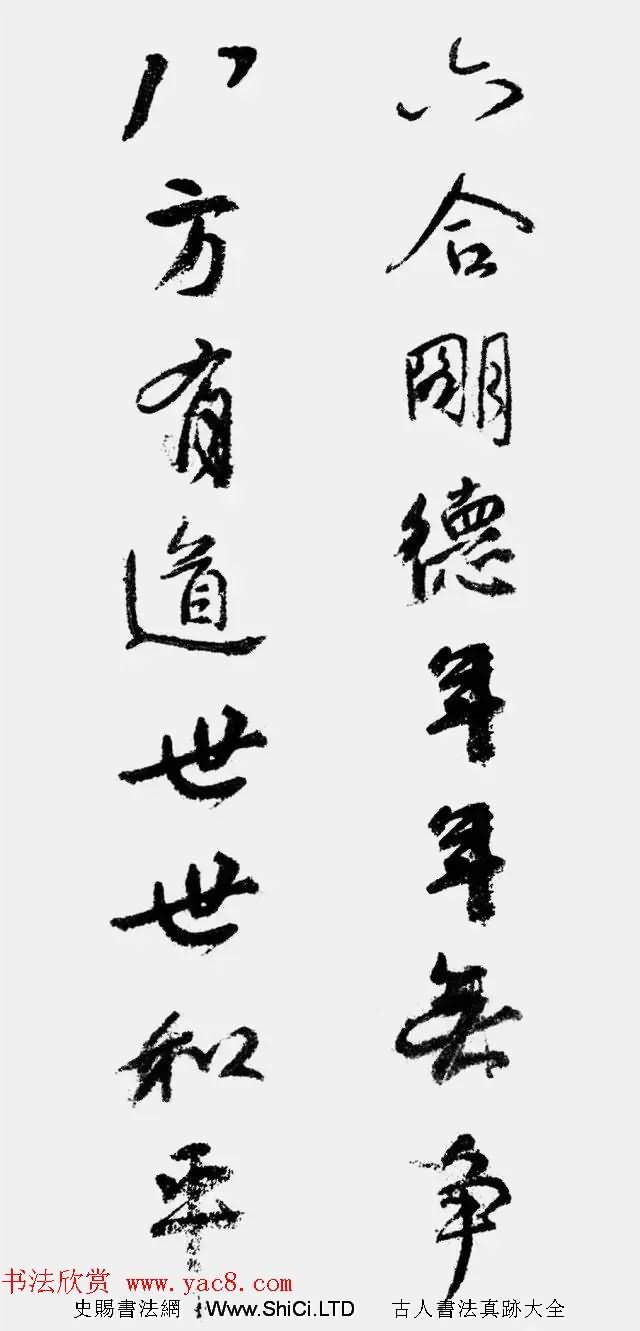 六合朙德年年無争
八方有道世世和平
书法欣赏 www.yac8.com
史賜書法網 Www.ShiCi.LTD 古人書法真跡大全